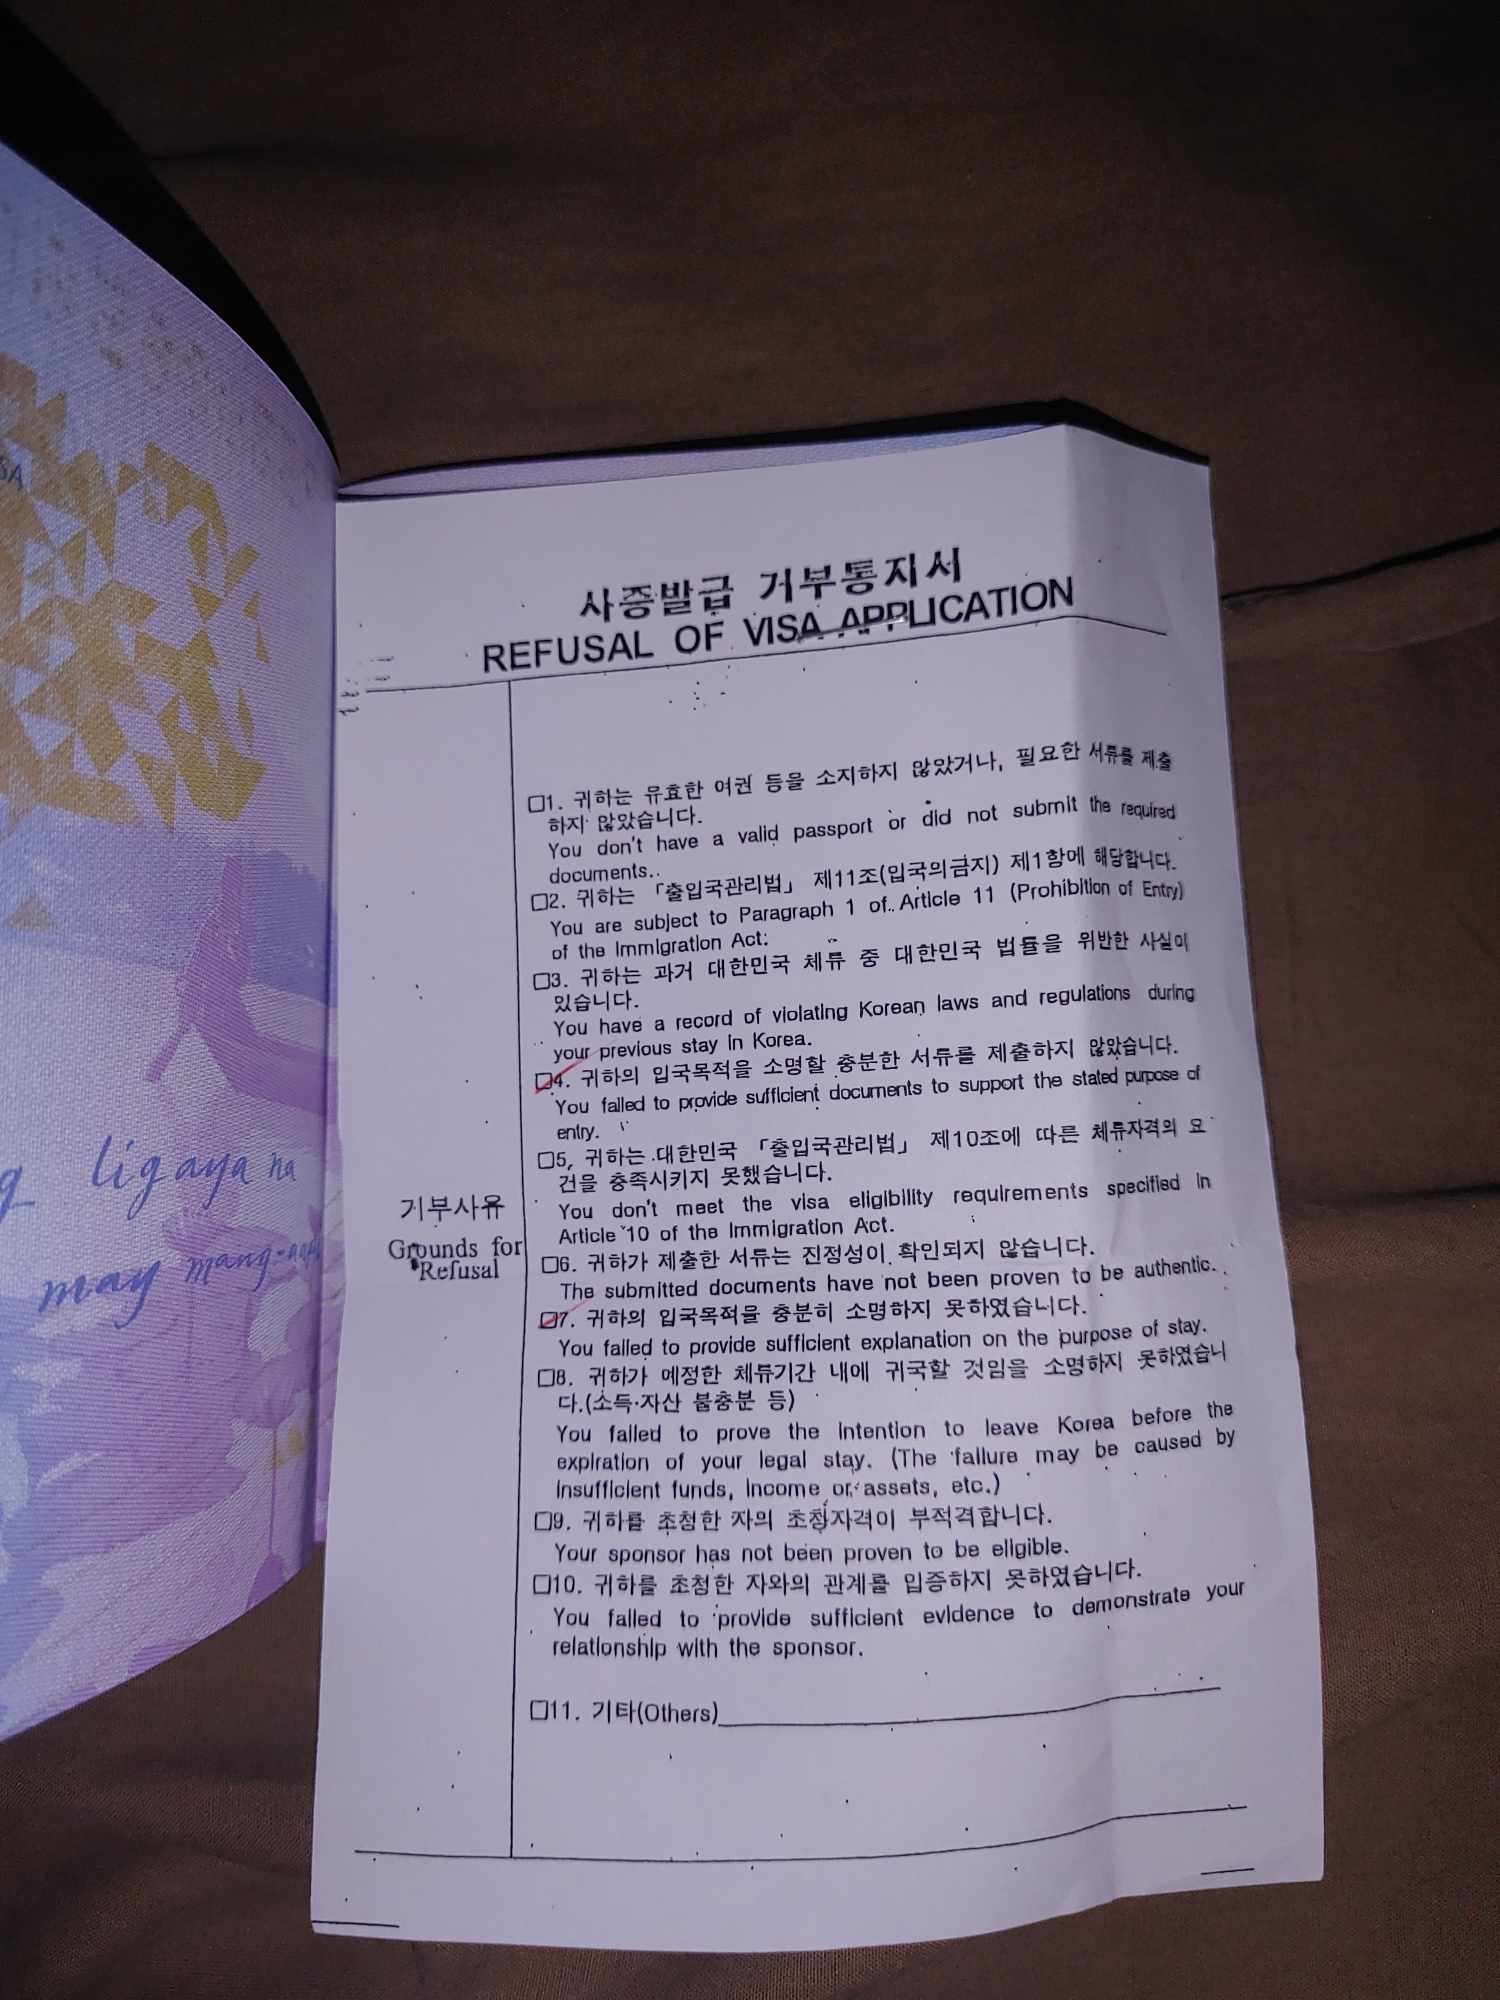 SA
ligaya na
may mang-
사증발급 거부통지서
REFUSAL OF VISA APPLICATION
거부사유
Grounds for
Refusal
□1. 귀하는 유효한 여권 등을 소지하지 않았거나, 필요한 서류를 제출
하지 않았습니다.
You don't have a valid passport or did not submit the required
documents..
□2. 귀하는 「출입국관리법」 제11조(입국의금지) 제1항에 해당합니다.
You are subject to Paragraph 1 of Article 11 (Prohibition of Entry)
of the Immigration Act:
□3. 귀하는 과거 대한민국 체류 중 대한민국 법률을 위반한 사실이
있습니다.
You have a record of violating Korean laws and regulations during
your previous stay in Korea.
□4. 귀하의 입국목적을 소명할 충분한 서류를 제출하지 않았습니다.
You failed to provide sufficient documents to support the stated purpose of
entry.
□5, 귀하는 대한민국 「출입국관리법」 제10조에 따른 체류자격의 요
건을 충족시키지 못했습니다.
You don't meet the visa eligibility requirements specified in
Article 10 of the Immigration Act.
□6. 귀하가 제출한 서류는 진정성이 확인되지 않습니다.
The submitted documents have not been proven to be authentic.
□7. 귀하의 입국목적을 충분히 소명하지 못하였습니다.
You failed to provide sufficient explanation on the purpose of stay.
□8. 귀하가 예정한 체류기간 내에 귀국할 것임을 소명하지 못하였습니
다.(소득·자산 불충분 등)
You failed to prove the intention to leave Korea before the
expiration of your legal stay. (The failure may be caused by
insufficient funds, income or assets, etc.)
□9. 귀하를 초청한 자의 초청자격이 부적격합니다.
Your sponsor has not been proven to be eligible.
□10. 귀하를 초청한 자와의 관계를 입증하지 못하였습니다.
You failed to provide sufficient evidence to demonstrate your
relationship with the sponsor.
□11. 기타(Others)